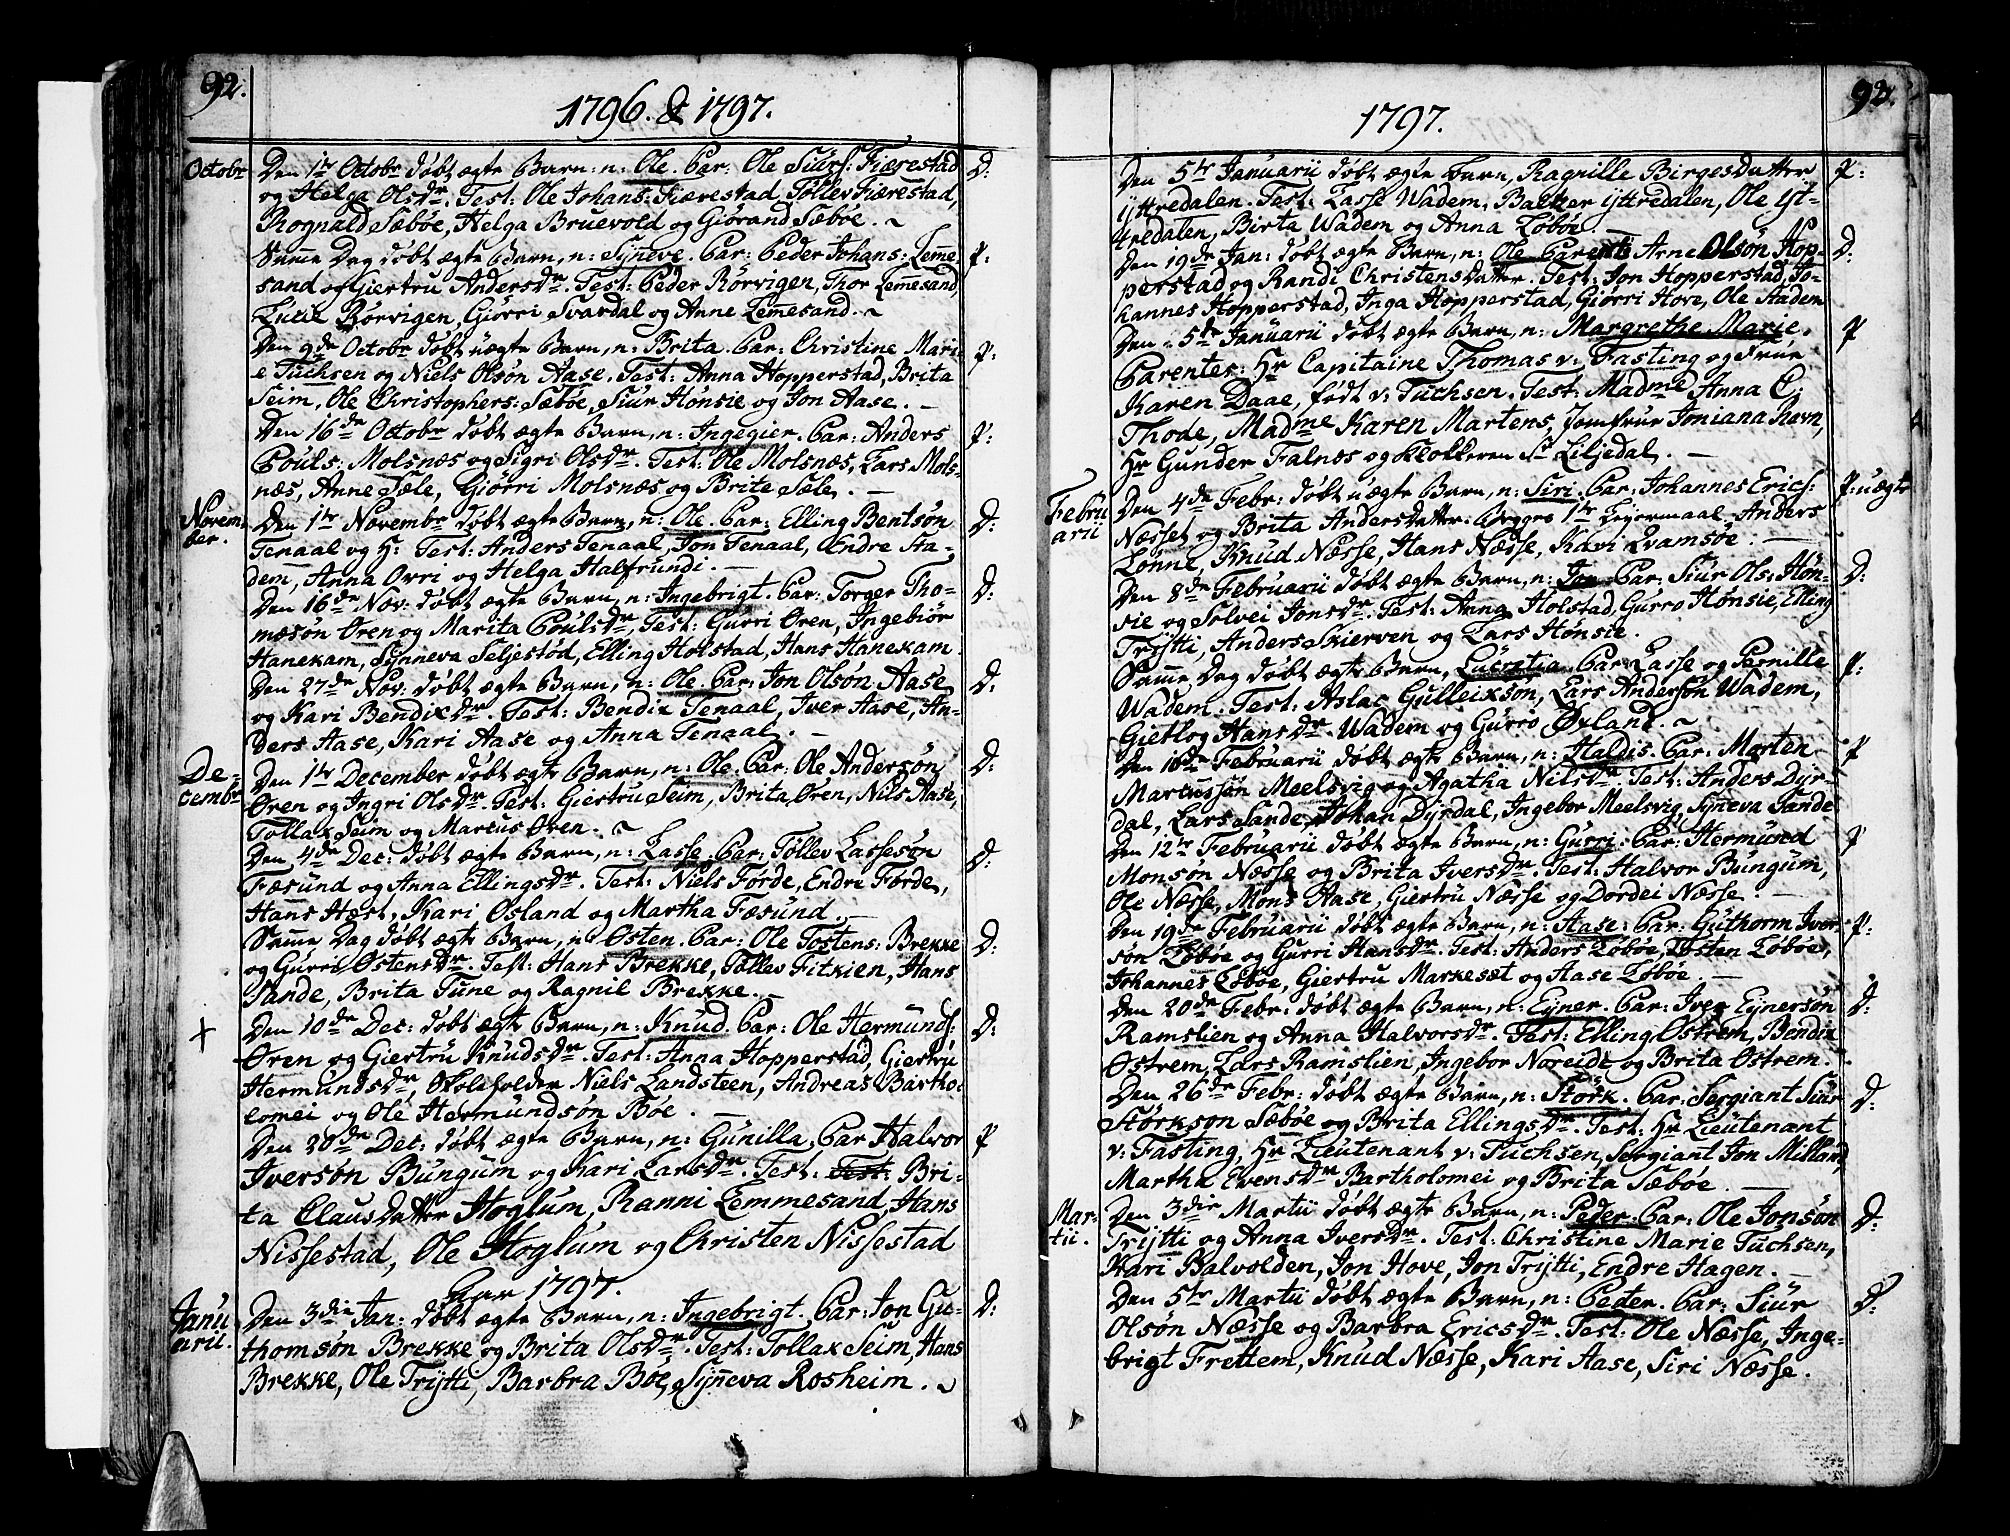 92.
1796. & 1797.
Octobr Den 1te Octobr døbt ægte Barn: n: Ole. Par: Ole Siurs: Fiærestad D:
og Helga Olsdr. Test: Ole Johans: Fiærestad, Tøllev Fiærestad,
Rognald Sæbøe, Helga Bruevold og Giørand Sæbøe. ~
Samme Dag døbt ægte Barn, n: Syneve. Par: Peder Johans: Lemme- P:
sand og Giertru Andersdr. Test: Peder Rørvigen, Thor Lemesand,
Lucie Rørvigen, Giørri Svardal og Anne Lemesand. ~
Den 9de Octobr døbt uægte Barn, n: Brita. Par: Christine Mari- P:
e Tuchsen og Niels Olsøn Aase. Test: Anna Hopperstad, Brita
Seim, Ole Christophers: Sæbøe, Siur Hønsie og Jon Aase. –
Den 16de Octobr døbt ægte Barn, n: Ingegier. Par: Anders P:
Pouls: Molsnæs og Sigri Olsdr. Test: Ole Molsnæs, Lars Mols-
næs, Anne Sæle, Giørri Molsnæs og Brite Sæle. –
Novem-
ber. Den 1te Novembr døbt ægte Barn, n: Ole. Par: Elling Bentsøn D:
Tenaal og H: Test: Anders Tenaal, Jon Tenaal, Endre Sta-
dem, Anna Ovri og Helga Halfrundi. –
Den 16de Nov: døbt ægte Barn, n: Ingebrigt. Par: Torger Tho- D:
mæsøn Øren og Marita Poulsdr. Test: Gurri Øren, Ingebiør
Hanekam, Synneva Seljestød, Elling Holstad, Hans Hanekam.
Den 27de Nov: døbt ægte Barn, n: Ole. Par: Jon Olsøn Aase D:
og Kari Bendixdr. Test: Bendix Tenaal, Iver Aase, An-
ders Aase, Kari Aase og Anna Tenaal. –
De-
cembr Den 1te December døbt ægte Barn, n: Ole. Par: Ole Andersøn D:
Øren og Ingri Olsdr. Test: Giertru Seim, Brita Øren, Nils Aase,
Tollax Seim og Marcus Øren. ~
Den 4de Dec: døbt ægte Barn, n: Lasse. Par: Tøllev Lassesøn D:
Fæsund og Anna Ellingsdr. Test: Niels Førde, Endri Førde,
Hans Hæst, Kari Øsland og Martha Fæsund. –
Samme Dag døbt ægte Barn, n: Østen. Par: Ole Tostens: Brekke D:
og Gurri Østensdr. Test: Hans Brekke, Tøllev Fitxien, Hans
Sande, Brita Tune og Ragnil Brekke. –
+ Den 10de Dec: døbt ægte Barn, n: Knud. Par: Ole Hermunds: D:
Øren og Giertru Knudsdr. Test: Anna Hopperstad, Giertru
Hermundsdr, Skoleholder Niels Landsteen, Andreas Bartho-
lomei og Ole Hermundsøn Bøe. –
Den 20de Dec: døbt ægte Barn, n: Gunilla, Par Halvor P
Iversøn Bungum og Kari Larsdr. Test: Test: Bri-
ta Clausdatter Høglum, Ranni Lemmesand, Hans
Nissestad, Ole Høglum og Christen Nissestad
Aar 1797.
Janu
arii. Den 3die Jan: døbt ægte Barn, n: Ingebrigt. Par: Jon Gu- D:
thomsøn Brekke og Brita Olsdr. Test: Tollax Seim, Hans
Brekke, Ole Trytti, Barbra Bøe, Synneva Rosheim. ~
93.
1797.
Den 5te Januarii døbt ægte Barn, Ragnille Birgesdatter P:
Yttredalen. Test: Lasse Wadem, Balzer Yttredalen, Ole Yt-
tredalen, Birta Wadem og Anna Løbøe. –
Den 19de Jan: døbt ægte Barn, n: Ole Parents Arne Olsøn Hop- D:
perstad og Randi Christensdatter. Test: Jon Hopperstad, Jo-
hannes Hopperstad, Inga Hopperstad, Giørri Hove, Ole Aadem
Den 5de Januarii døbt ægte Barn, n: Margrethe Marie. P
Parenter: Hr Capitaine Thomas v: Fasting og Frue
Karen Daae, født v: Tuchsen. Test: Madme Anna C:
Thode, Madme Karen Martens, Jomfrue Joniana Ravn,
Hr Gunder Falnes og Klokkeren Sr Liljedal. –
Febru
arii Den 4de Febr: døbt uægte Barn, n: Siri. Par: Johannes Erics: P: uægte
Nesset og Brita Andersdatter: Begges 1te Leyermaal. Anders
Lønne, Knud Næsse, Hans Næsse, Kari Qvamsøe. –
Den 8de Februarii døbt ægte Barn, n: Jon. Par: Siur Ols: Høn- D:
sie og Solvei Jonsdr. Test: Anna Holstad, Gurro Hønsie, Elling
Trytti, Anders Skierven og Lars Hønsie.
Samme Dag døbt ægte Barn, Lucretia. Par: Lasse og Pernille P:
Wadem. Test: Aslac Gulleixson, Lars Andersøn Wadem,
Gietlog Hansdr. Wadem og Gurro Øxland. ~
Den 10de Februarii døbt ægte Barn, n: Haldis. Par: Morten P
Marcussøn Meelsvig og Agatha Nilsdr. Test: Anders Dyr-
dal, Lars Sande, Johan Dyrdal, Ingebor Meelsvig, Syneva Sande
Den 12te Februarii døbt ægte Barn, n: Gurri. Par: Hermund P
Monsøn Næsse og Brita Iversdr. Test: Halvor Bungum,
Ole Næsse, Mons Aase, Giertru Næsse og Dordei Næsse. –
Den 19de Februarii døbt ægte Barn, n: Aase: Par: Guthorm Iver- P:
søn Løbøe og Gurri Hansdr. Test: Anders Løbøe, Tosten Løbøe,
Johannes Løbøe, Giertru Markesæt og Aase Løbøe. –
Den 20de Febr: døbt ægte Barn, n: Eyner. Par: Iver Eynersøn D:
Ramslien og Anna Halvorsdr. Test: Elling Østrem, Bendix
Østrem, Lars Ramslien, Ingebor Noreide og Brita Østrem. –
Den 26de Febr: døbt ægte Barn, n: Størk. Par: Sergiant Siur D:
Størkson Sæbøe og Brita Ellingsdr. Test: Hr Lieutenant
v: Fasting, Hr Lieutenant v: Tuchsen, Sergiant Jon Milland
Martha Evensdr Bartholomei og Brita Sæbøe. –
Mar-
tii. Den 3die Martii døbt ægte Barn, n: Peder. Par: Ole Jonsøn D:
Trytti og Anna Iversdr. Test: Christine Marie Tuchsen,
Kari Balvolden, Jon Hove, Jon Trytti, Endre Hagen. –
Den 5te Martii døbt ægte Barn, n: Peder. Par: Siur D:
Olsøn Næsse og Barbra Ericsdr. Test: Ole Næsse, Inge-
brigt Frettem, Knud Næsse, Kari Aase, Siri Næsse.